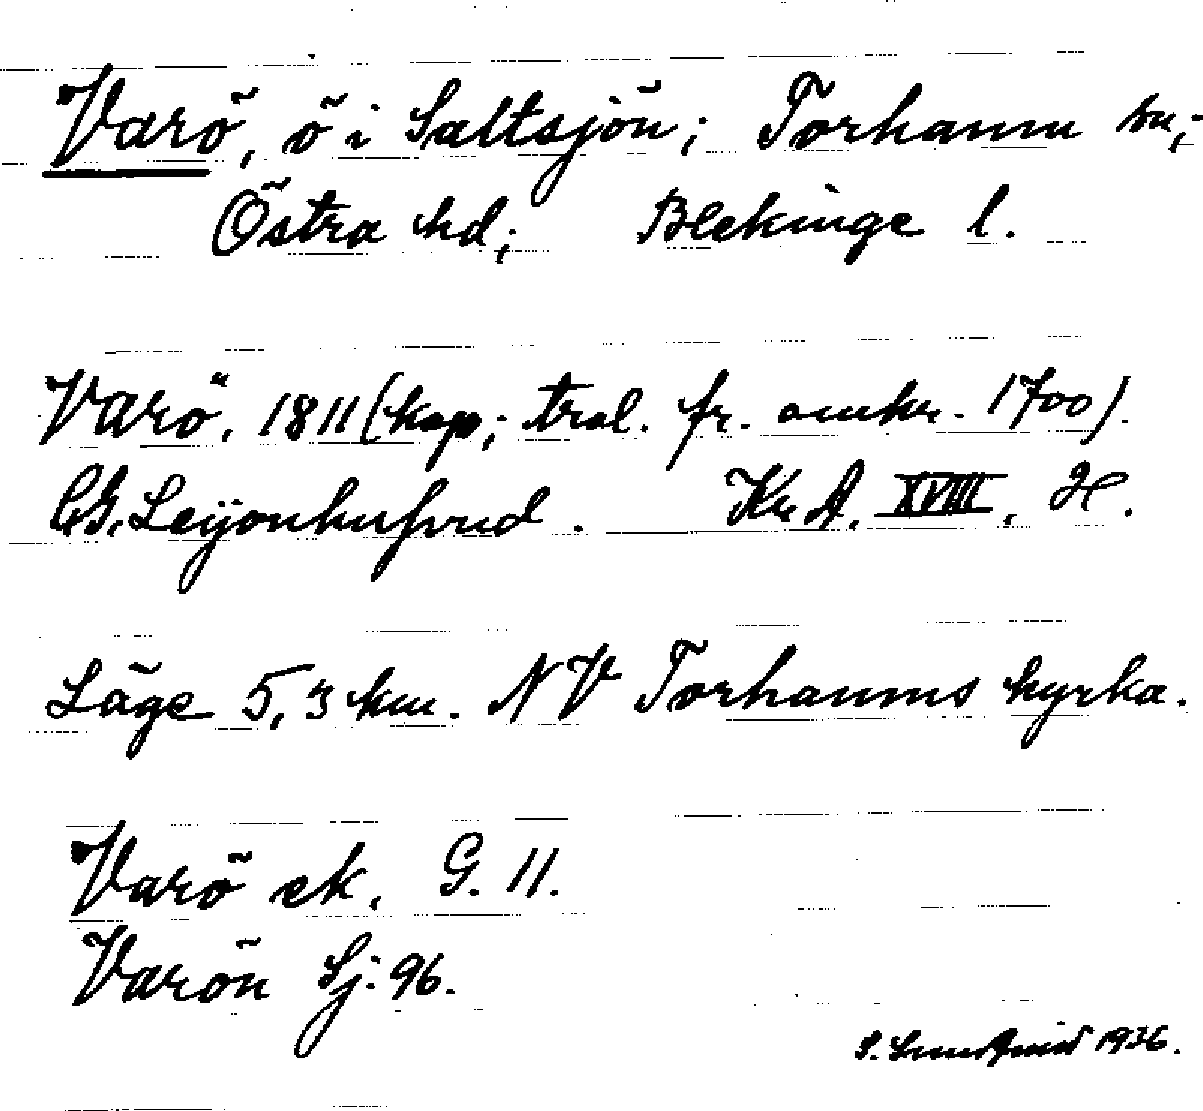 Varö, ö i Saltsjön; Torhamn sn;
Östra hd; Blekinge l.
Varö, 1811 (kop; tral. fr. omkr. 1700).
C.G. Leijonhufvud. Kr. A. XVIII, H.
Läge 5,3 km. NV Torhamns kyrka.
Varö ek. G. 11.
Varön Sj. 96.
S. 1936.